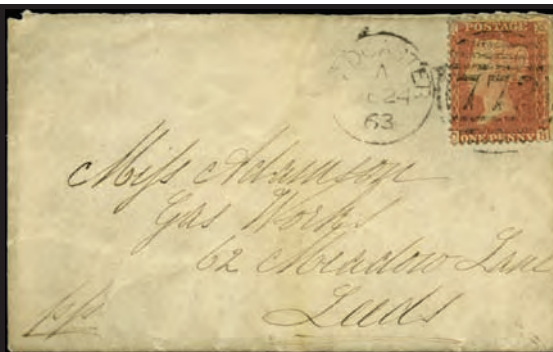 POSTAGE
ONE PENNY
A
24
63
Miss Adamson
Gas Works
62 Meadow Lane
Leeds